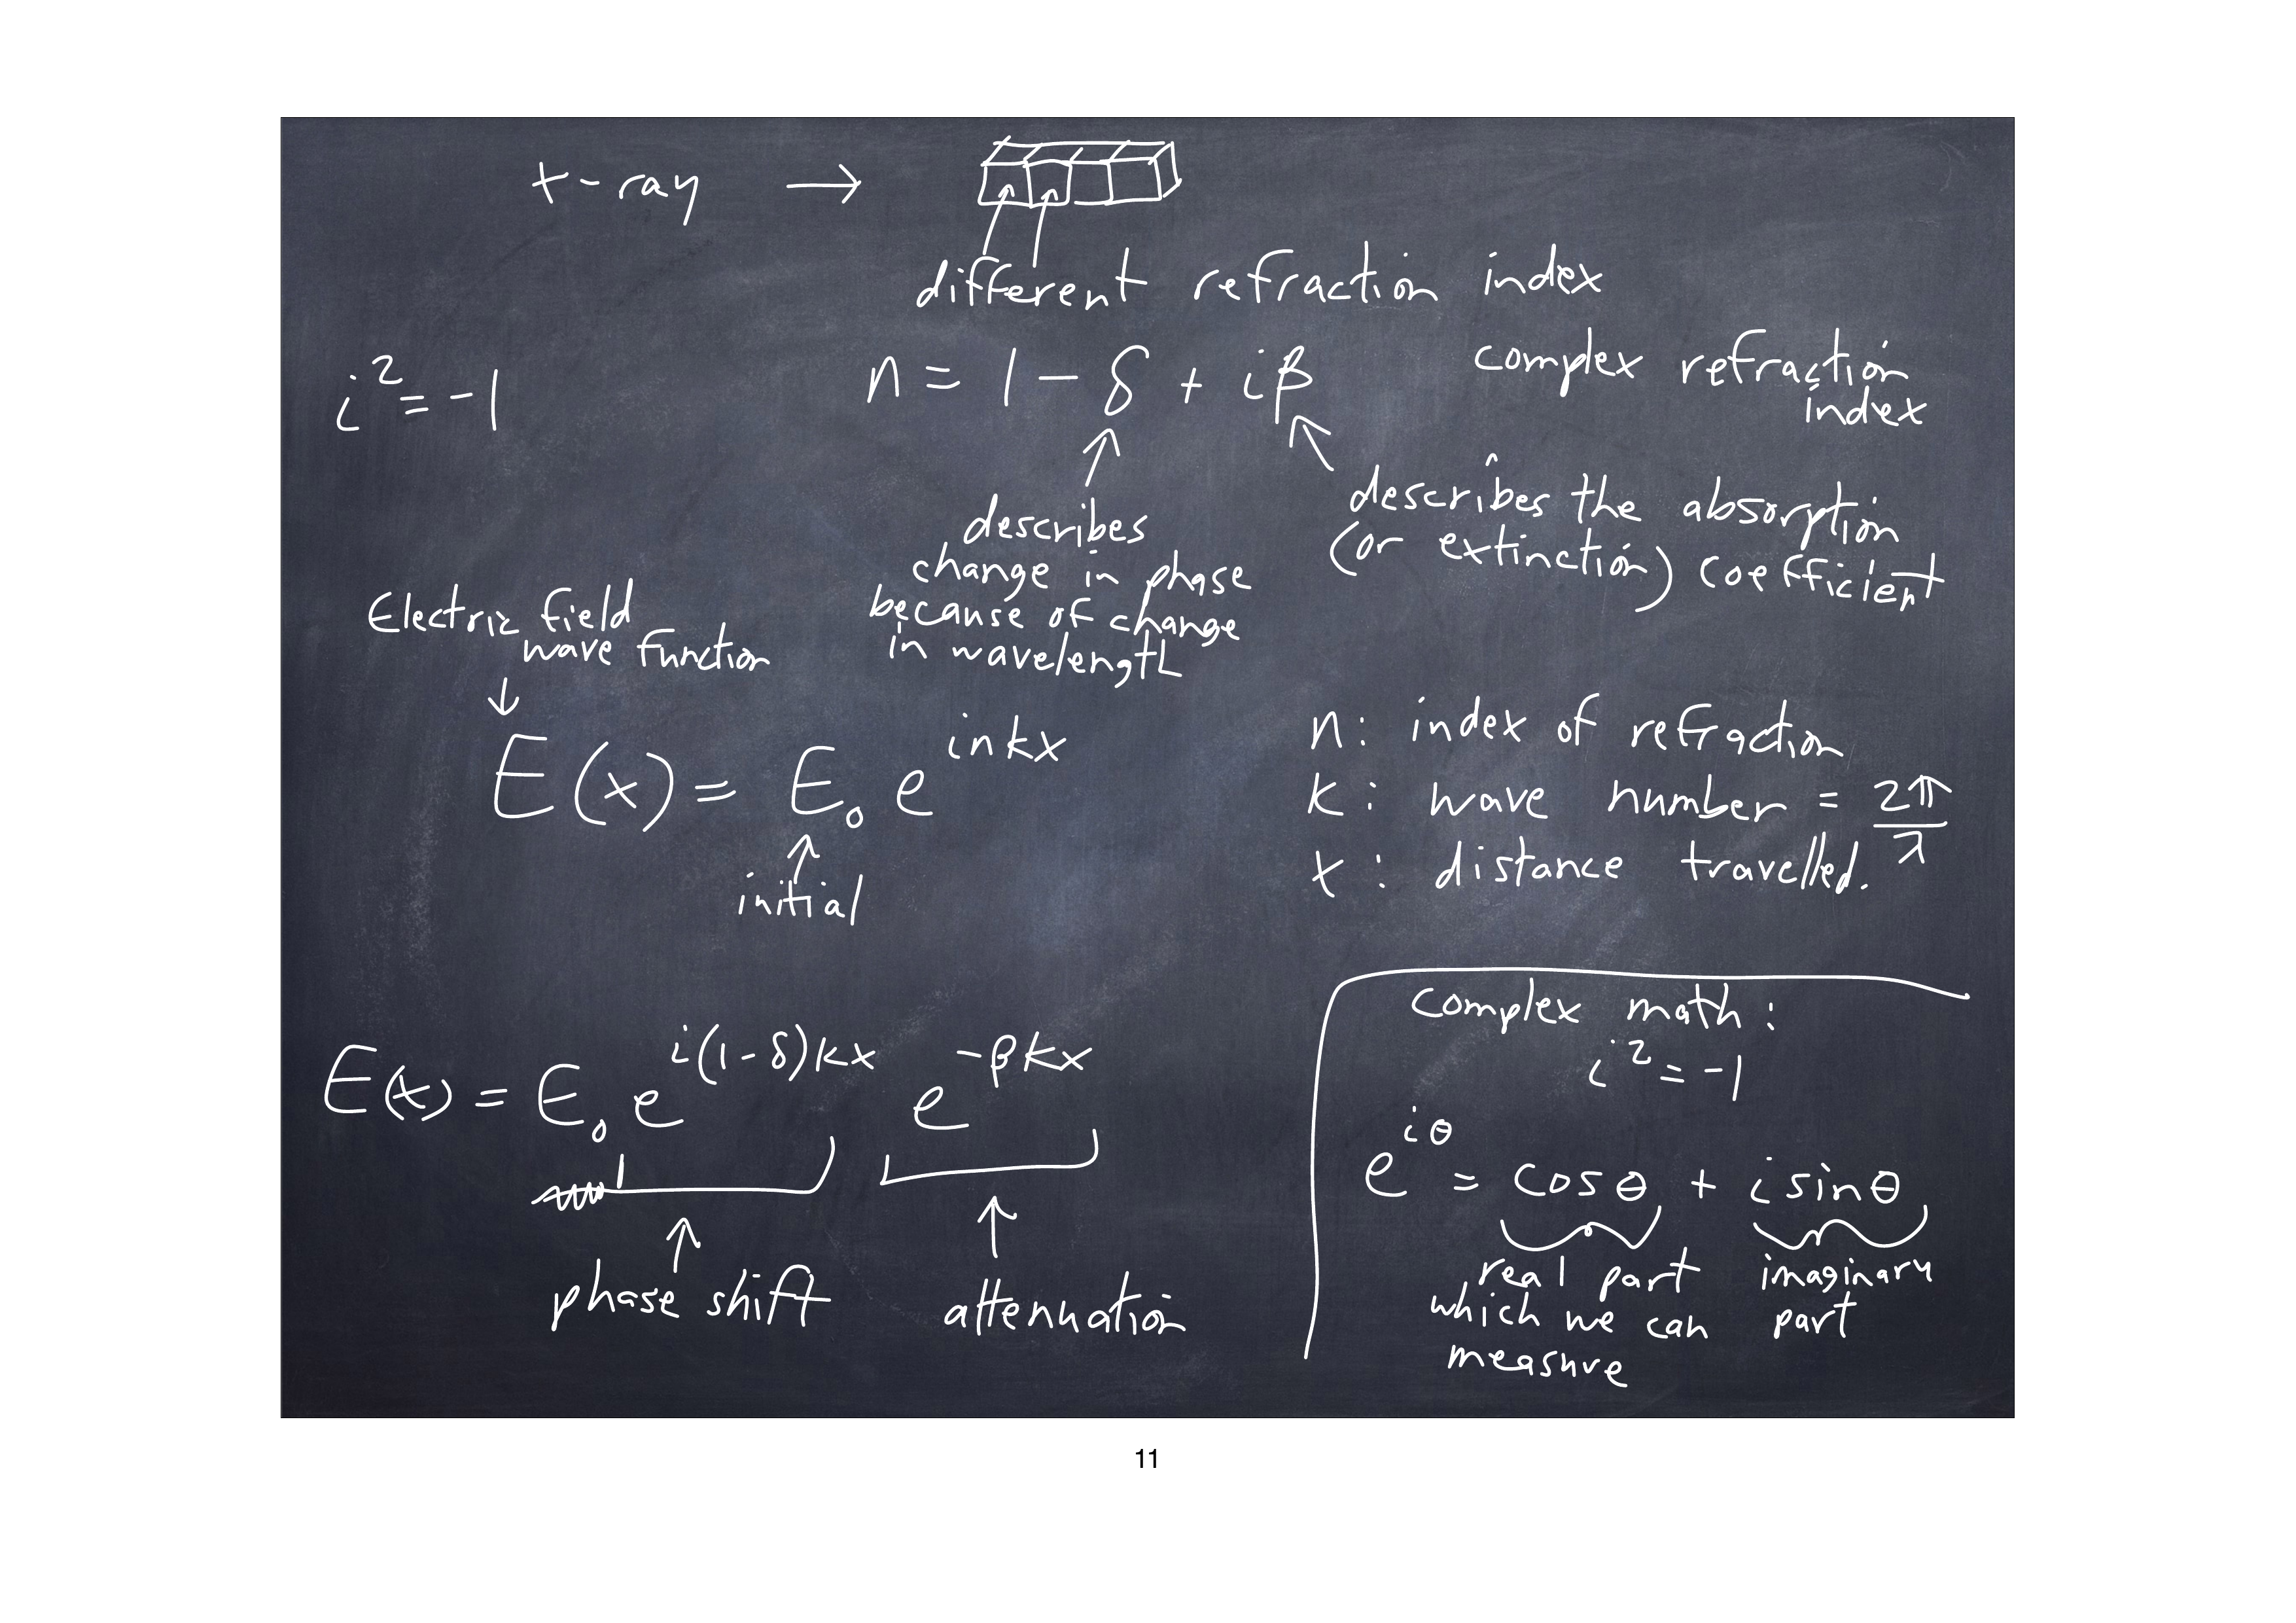 x-ray →
different refraction index
i² = -1
n = 1 - δ + iβ
complex refraction
index
describes
change in phase
because of change
in wavelength
describes the absorption
(or extinction) coefficient
Electric field
wave function
E(x) = E₀ e^{inkx}
initial
n: index of refraction
k: wave number = 2π/λ
x: distance travelled.
E(x) = E₀ e^{i(1-δ)kx} e^{-βkx}
phase shift
attenuation
complex math:
i² = -1
e^{iθ} = cosθ + i sinθ
real part
which we can
measure
imaginary
part
11